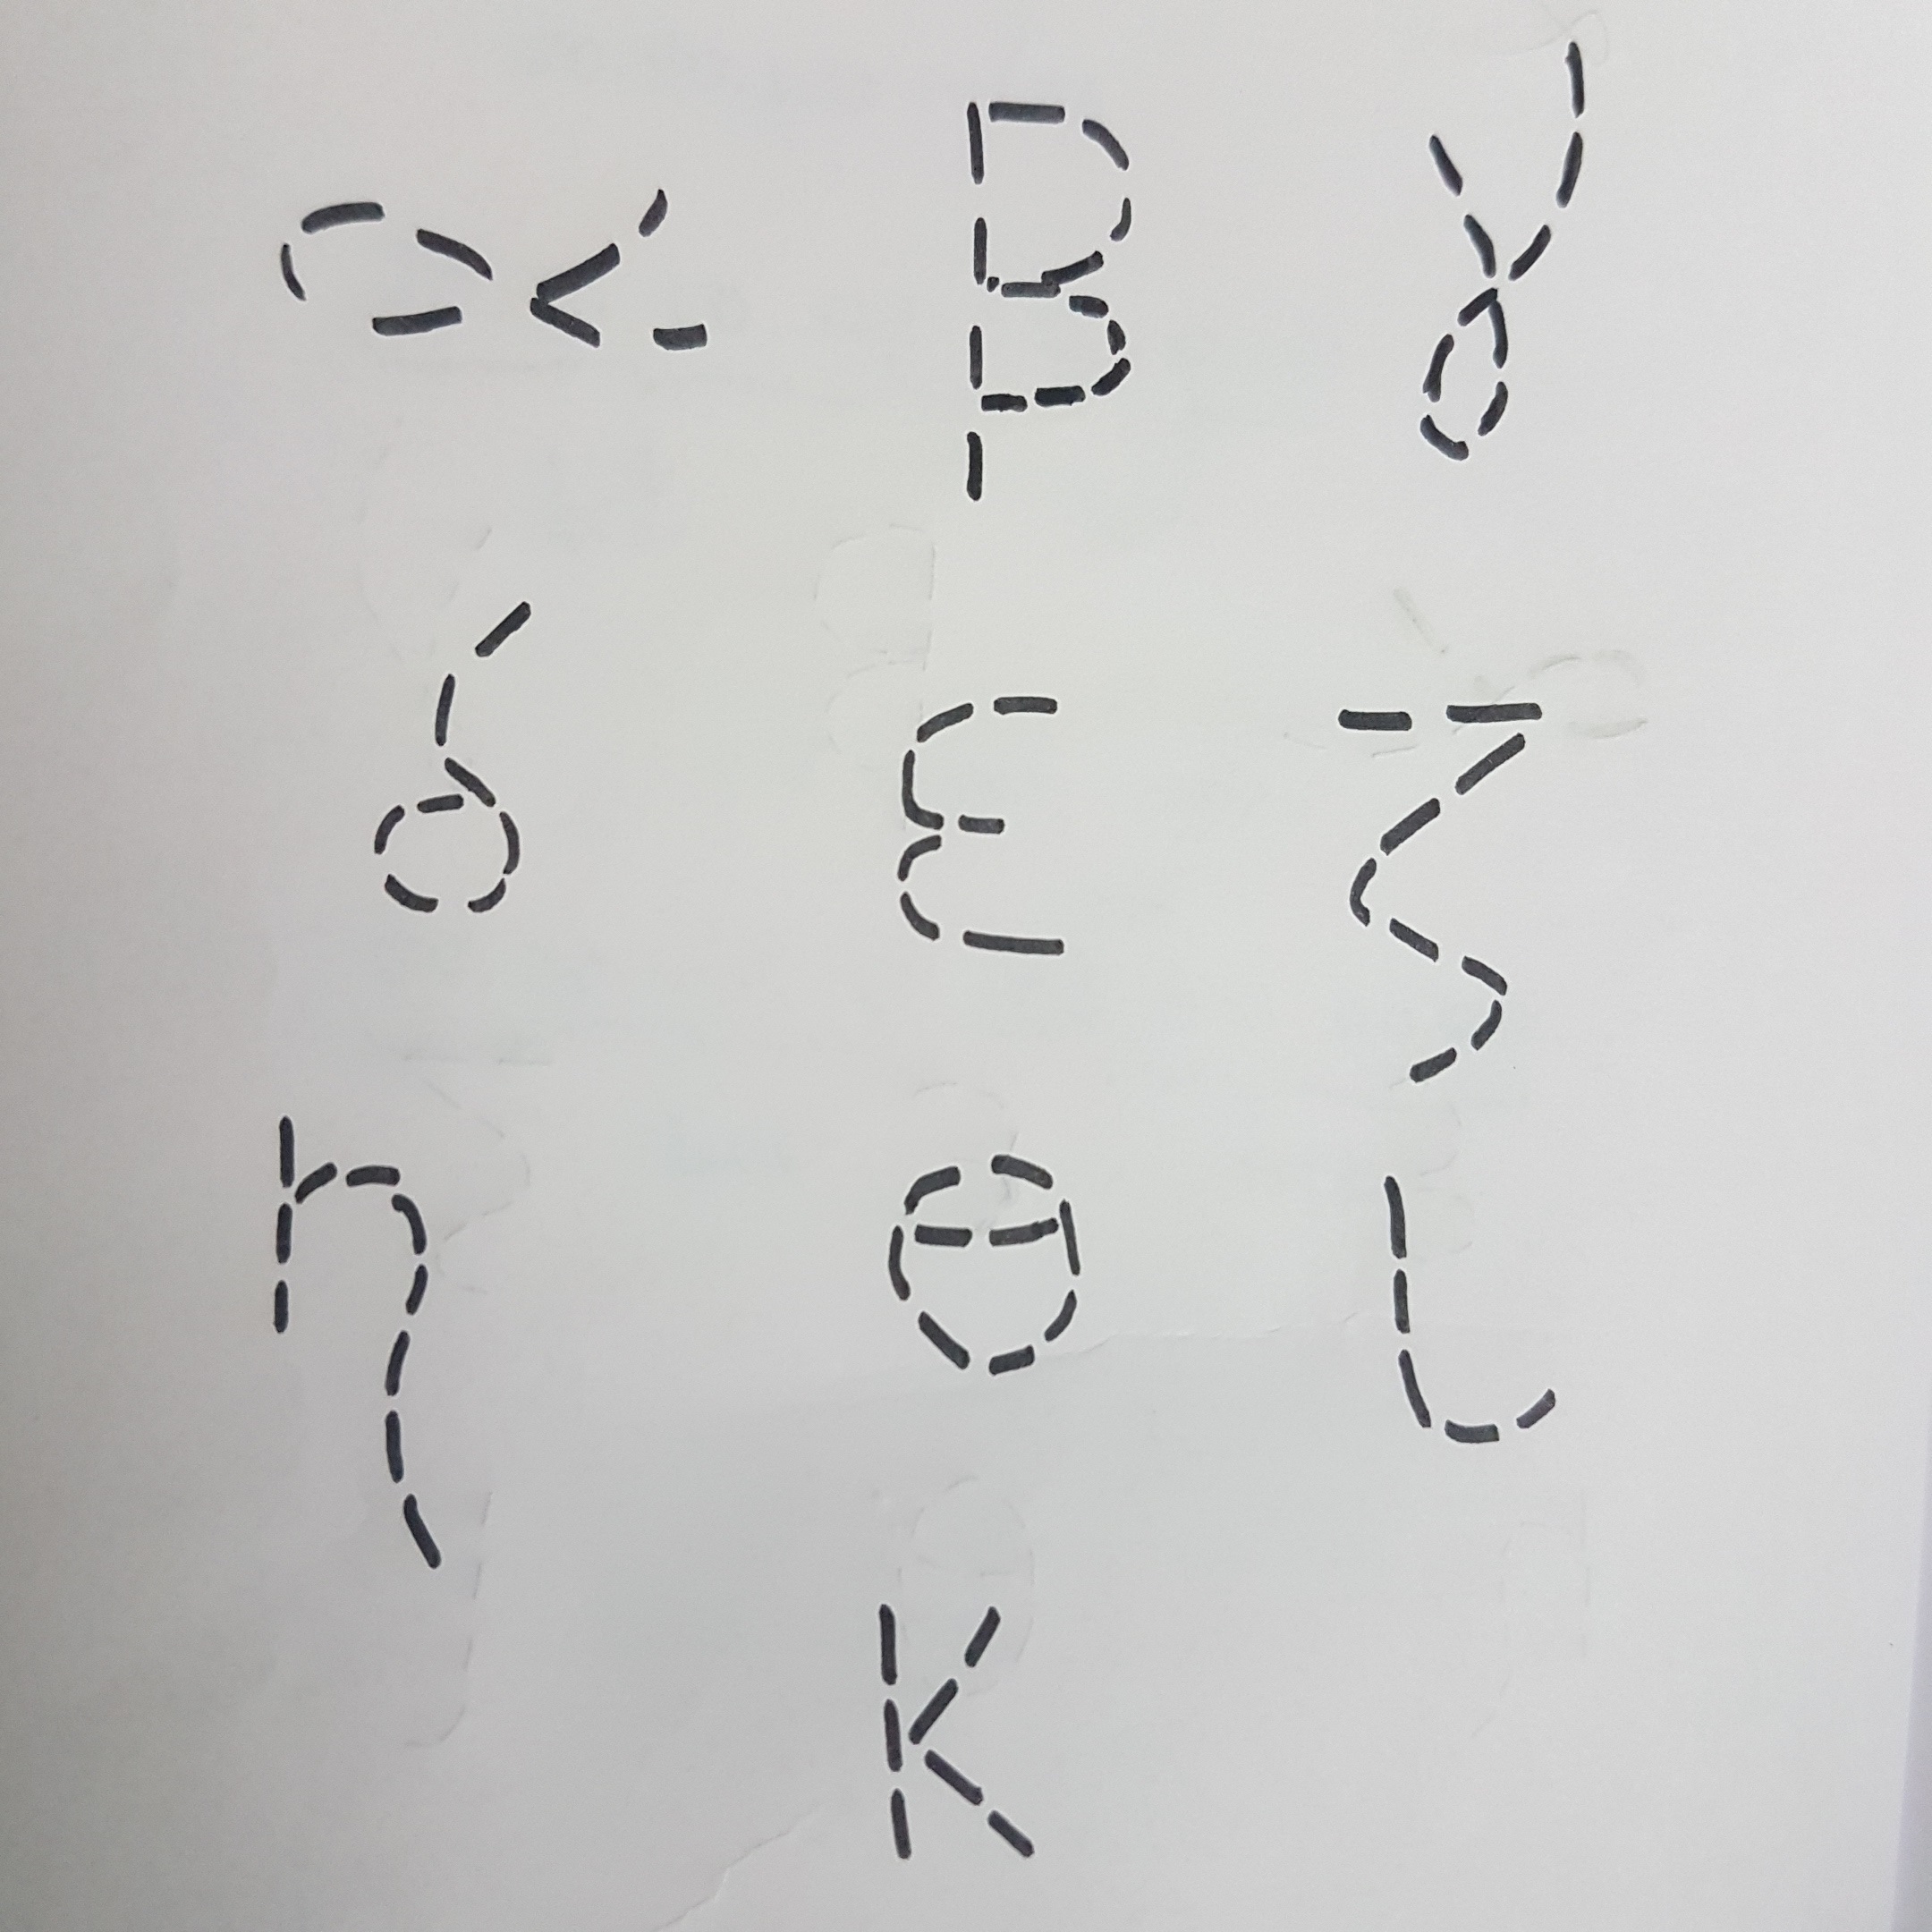 α β γ
δ ε ζ
η θ ι
κ